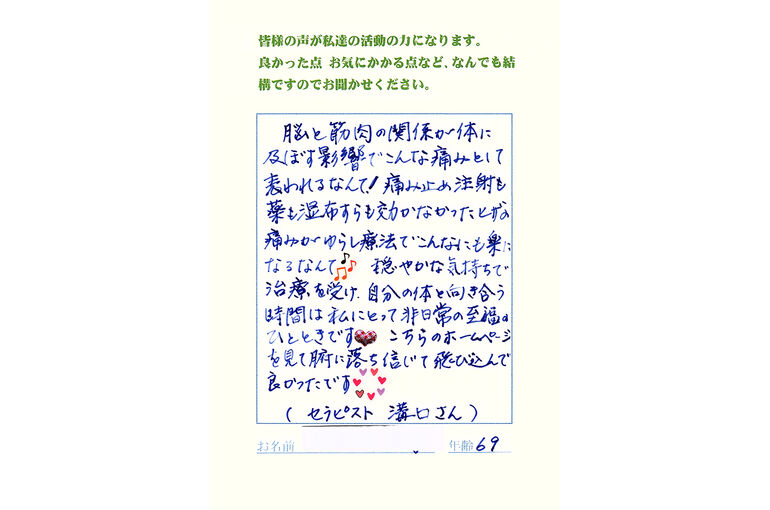 皆様の声が私達の活動の力になります。
良かった点 お気にかかる点など、なんでも結
構ですのでお聞かせください。
脳と筋肉の関係が体に
及ぼす影響でこんな痛みとして
表われるなんて!痛み止め注射も
薬も湿布すらも効かなかったヒザの
痛みがゆらし療法でこんなにも楽に
なるなんて♪♫ 穏やかな気持ちで
治療を受け、自分の体と向き合う
時間は私にとって非日常の至福の
ひとときです こちらのホームページ
を見て腑に落ち信じて飛び込んで
良かったです
(セラピスト 溝口さん)
お名前 年齢69